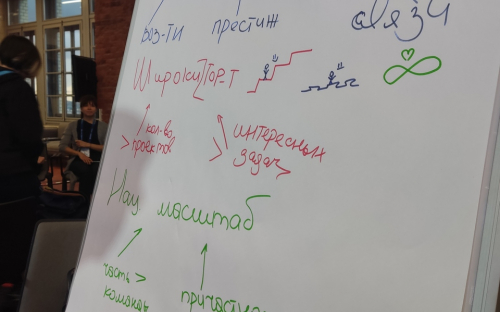 воз-ти престиж связи
Широкий порт-т
> кол-во проектов
> интересных задач
Нац масштаб
часть >
команды
причастн